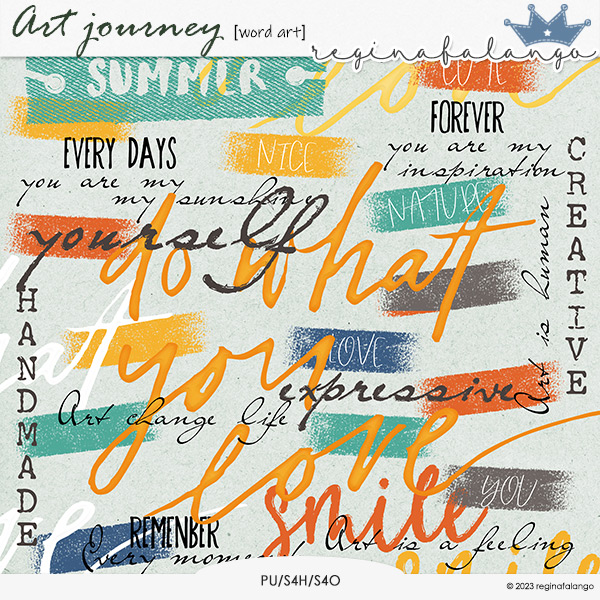 Art journey [word art]
reginafalango
SUMMER
LOVE
FOREVER
you are my
inspiration
EVERY DAYS
you are my
my sunshine
NICE
NATURE
CREATIVE
yourself
do what
you
love
HANDMADE
Art is human
LOVE
expressive
Art change life
smile
YOU
REMENBER
Every moment
Art is a feeling
PU/S4H/S4O
© 2023 reginafalango